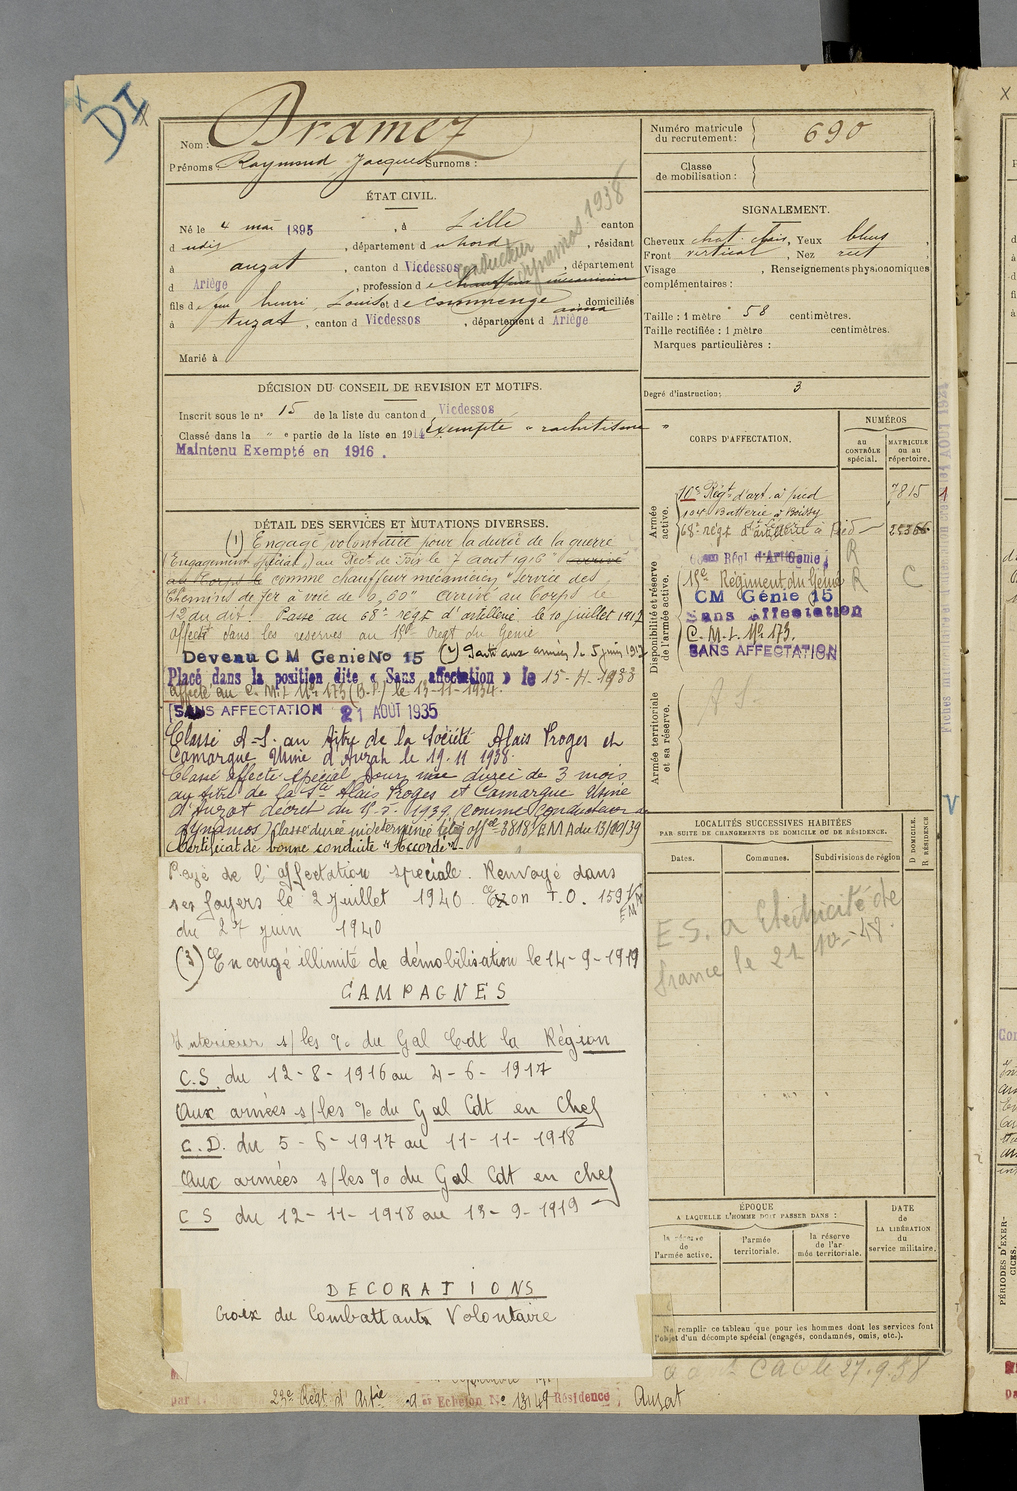 DI
Nom : Dramez
Prénoms : Raymond Jacques Surnoms :
Numéro matricule du recrutement : 690
Classe de mobilisation :
ÉTAT CIVIL.
Né le 4 mai 1895, à Lille canton
dudit, département du Nord, résidant
à Auzat, canton d Vicdessos, département
d Ariège, profession de chauffeur mécanicien
conducteur dynamos 1938
fils de feu Henri, Louis et de Commenge Anna, domiciliés
à Auzat, canton d Vicdessos, département d Ariège
Marié à
SIGNALEMENT.
Cheveux chat clair, Yeux bleus,
Front vertical, Nez rect,
Visage , Renseignements physionomiques
complémentaires :
Taille : 1 mètre 58 centimètres.
Taille rectifiée : 1 mètre centimètres.
Marques particulières :
Degré d'instruction : 3
DÉCISION DU CONSEIL DE REVISION ET MOTIFS.
Inscrit sous le n° 15 de la liste du canton d Vicdessos
Classé dans la " e partie de la liste en 1914 exempté " rachitisme "
Maintenu Exempté en 1916.
DÉTAIL DES SERVICES ET MUTATIONS DIVERSES.
(1) Engagé volontaire pour la durée de la guerre
(Engagement spécial) au Rect. de Foix le 7 août 1916 arrivé
au Corps le comme chauffeur mécanicien "Service des
Chemins de fer à voie de 0,60" arrivé au Corps le
12 du dit. Passé au 68e régt d'artillerie le 10 juillet 1917
Affecté dans les réserves au 15e Regt du Génie
Devenu CM Génie No 15 (2) Parti aux armées le 5 juin 1917
Placé dans la position dite « Sans affectation » le 15-4-1933
affecté au C.M.I. No 173 (B.P) le 13-11-1934.
SANS AFFECTATION 21 AOUT 1935
Classé A-S. au titre de la Société Alais Froges et
Camargue Usine d'Auzat le 19.11 1938.
Classé affecté spécial pour une durée de 3 mois
au titre de la Sté Alais Froges et Camargue Usine
d'Auzat décret du 1939 comme conducteur de
dynamos) Classé durée indéterminée
Certificat de bonne conduite "Accordé".
Rayé de l'affectation spéciale. Renvoyé dans
ses foyers le 2 juillet 1940. Exon T.O. 159
du 27 juin 1940
(3) En congé illimité de démobilisation le 14-9-1919
CAMPAGNES
Intérieur s/les % du Gal Cdt la Région
C.S. du 12-8-1916 au 4-6-1917
Aux armées s/les % du Gal Cdt en Chef
C.D. du 5-6-1917 au 11-11-1918
Aux armées s/les % du Gal Cdt en chef
C S du 12-11-1918 au 13-9-1919
DECORATIONS
Croix du Combattant Volontaire
23e Régt d'Artie
Echelon No 13149 Résidence ; Auzat
CORPS D'AFFECTATION.
NUMÉROS
au CONTRÔLE spécial.
MATRICULE ou au répertoire.
Armée active.
10e Régt d'art. à pied 7815
104 Batterie à Boissy
68e régt d'artillerie à pied
Disponibilité et réserve de l'armée active.
15e Régiment du Génie
CM Génie 15
Sans affectation
C.M.I. No 173.
SANS AFFECTATION
R
R
C
Armée territoriale et sa réserve.
A S.
LOCALITÉS SUCCESSIVES HABITÉES
PAR SUITE DE CHANGEMENTS DE DOMICILE OU DE RÉSIDENCE.
Dates.
Communes.
Subdivisions de région
D DOMICILE.
R RÉSIDENCE
E.S. a Electricité de
france le 21 10-48.
ÉPOQUE
A LAQUELLE L'HOMME DOIT PASSER DANS :
la réserve de l'armée active.
l'armée territoriale.
la réserve de l'armée territoriale.
DATE de LA LIBÉRATION du service militaire.
Ne remplir ce tableau que pour les hommes dont les services font
l'objet d'un décompte spécial (engagés, condamnés, omis, etc.).
CAC le 27.9.58
V
X
PÉRIODES D'EXERCICES.